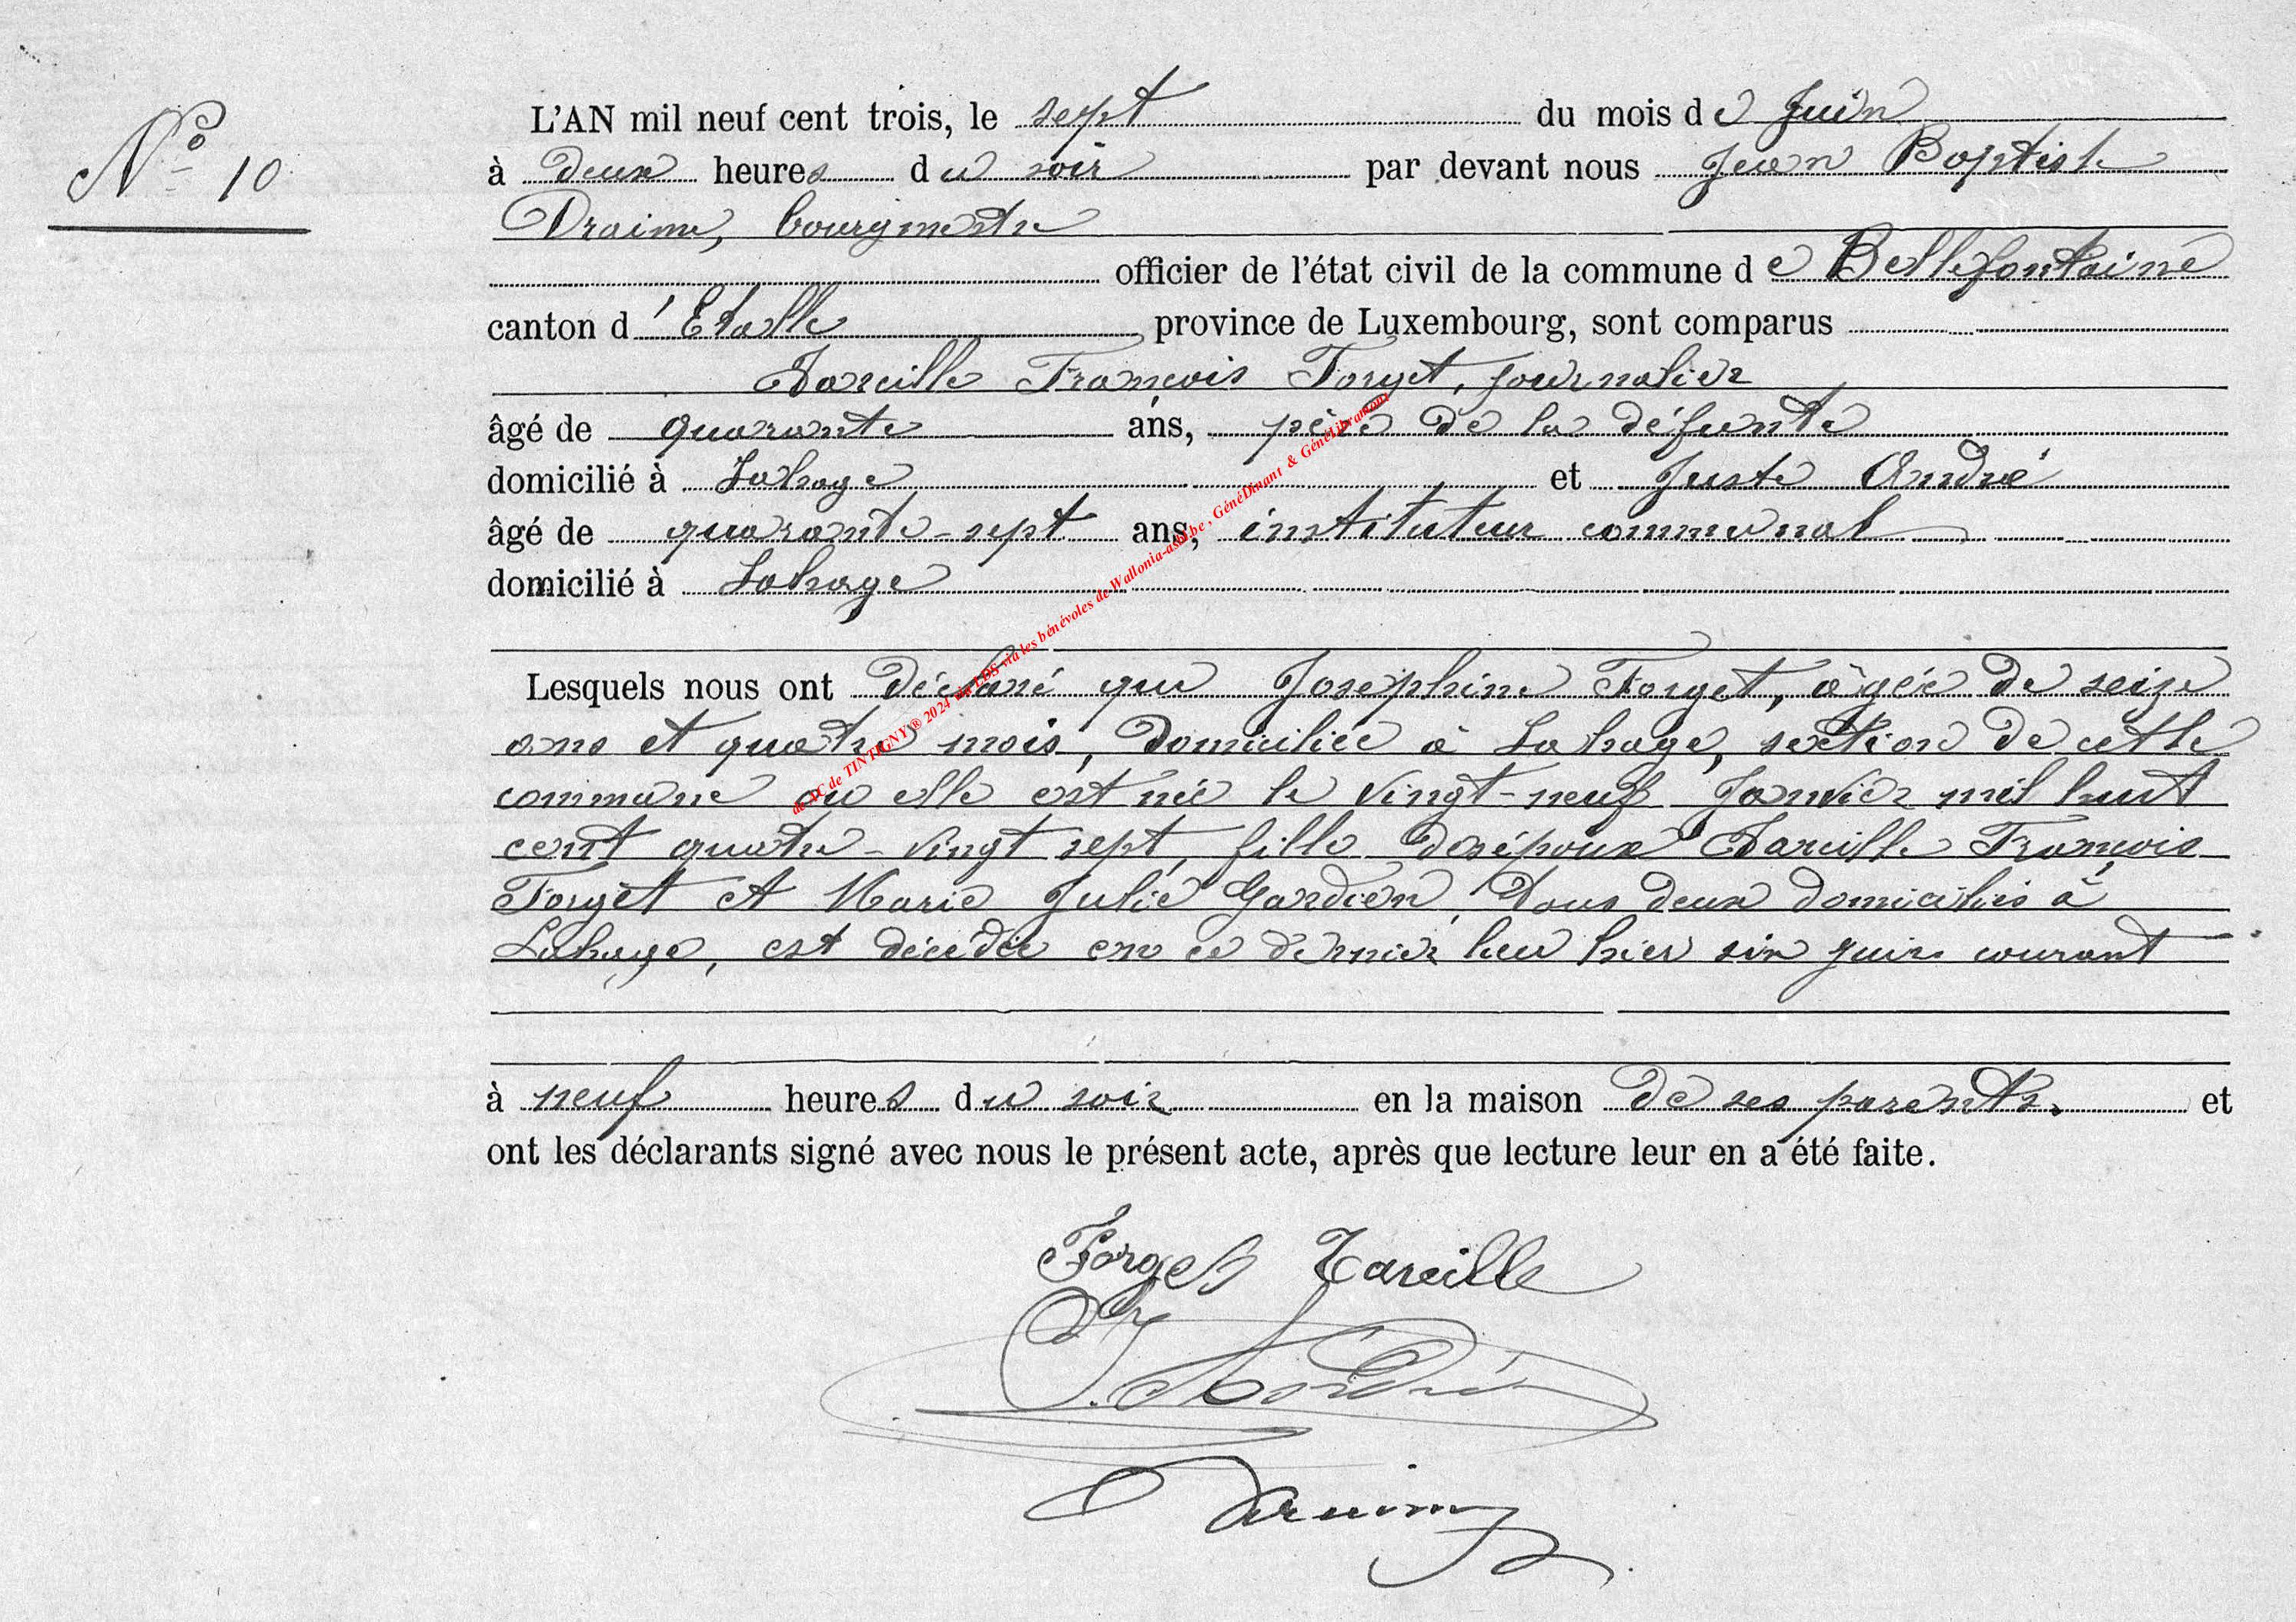 N° 10
L'AN mil neuf cent trois, le sept du mois de Juin
à deux heures du soir par devant nous Jean Baptiste
Draime, bourgmestre
officier de l'état civil de la commune de Bellefontaine
canton d'Etalle province de Luxembourg, sont comparus
Tarcille François Forget, journalier
âgé de quarante ans, père de la défunte
domicilié à Lahage et Juste André
âgé de quarante-sept ans, instituteur communal
domicilié à Lahage
Lesquels nous ont déclaré que Joséphine Forget, âgée de seize
ans et quatre mois, domiciliée à Lahage, section de cette
commune où elle est née le vingt-neuf Janvier mil huit
cent quatre-vingt sept, fille des époux Tarcille François
Forget et Marie Julie Gardien, tous deux domiciliés à
Lahage, est décédée en ce dernier lieu hier six juin courant
à neuf heures du soir en la maison de ses parents. et
ont les déclarants signé avec nous le présent acte, après que lecture leur en a été faite.
Forget Tarcille
J. André
Draime
de AC de TINTIGNY® 2024 via LDS via les bénévoles de Wallonia-asbl.be, GénéDinant & GénéLibramont